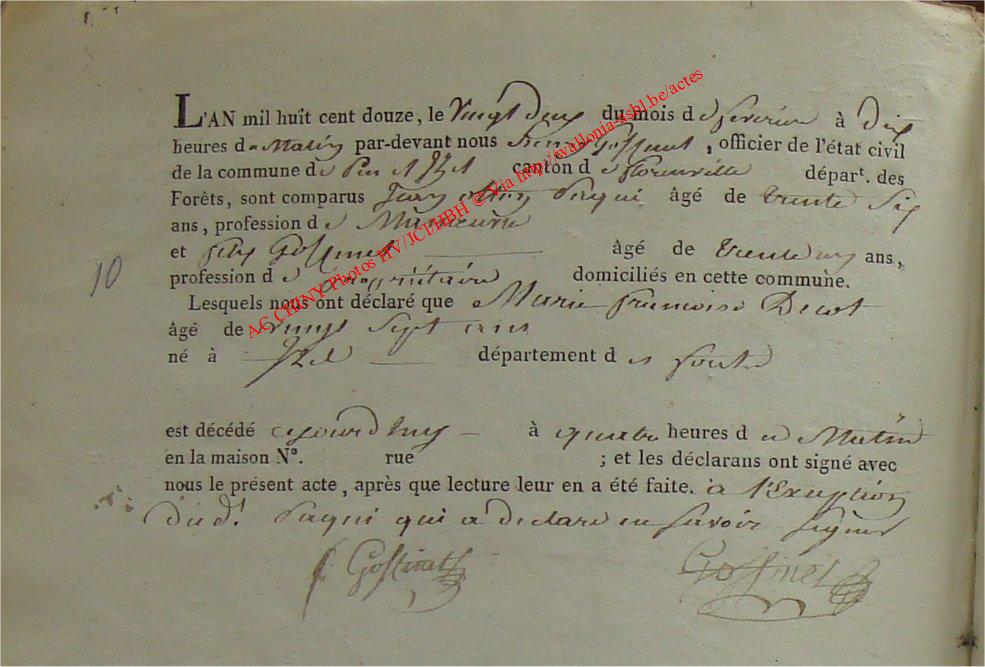 L'AN mil huit cent douze, le vingt deux du mois de fevrier à dix
heures du Matin par-devant nous Gossinet, officier de l'état civil
de la commune de Pin et Izel canton de florenville départ. des
Forêts, sont comparus Jean Paqui âgé de trente six
ans, profession de Manoeuvre
et Gossinet âgé de trente ans,
profession de proprietaire domiciliés en cette commune.
Lesquels nous ont déclaré que Marie françoise Decot
âgé de vingt sept ans
né à Izel département des foret
10
est décédé cejourdhuy à quatre heures du Matin
en la maison N°. rue ; et les déclarans ont signé avec
nous le présent acte, après que lecture leur en a été faite. à l'Exception
dud. Paqui qui a declaré ne savoir signer
f Gossinet Gossinet
AG CHINY Photos HV/JCl/HBH © Via http://wallonia-asbl.be/actes